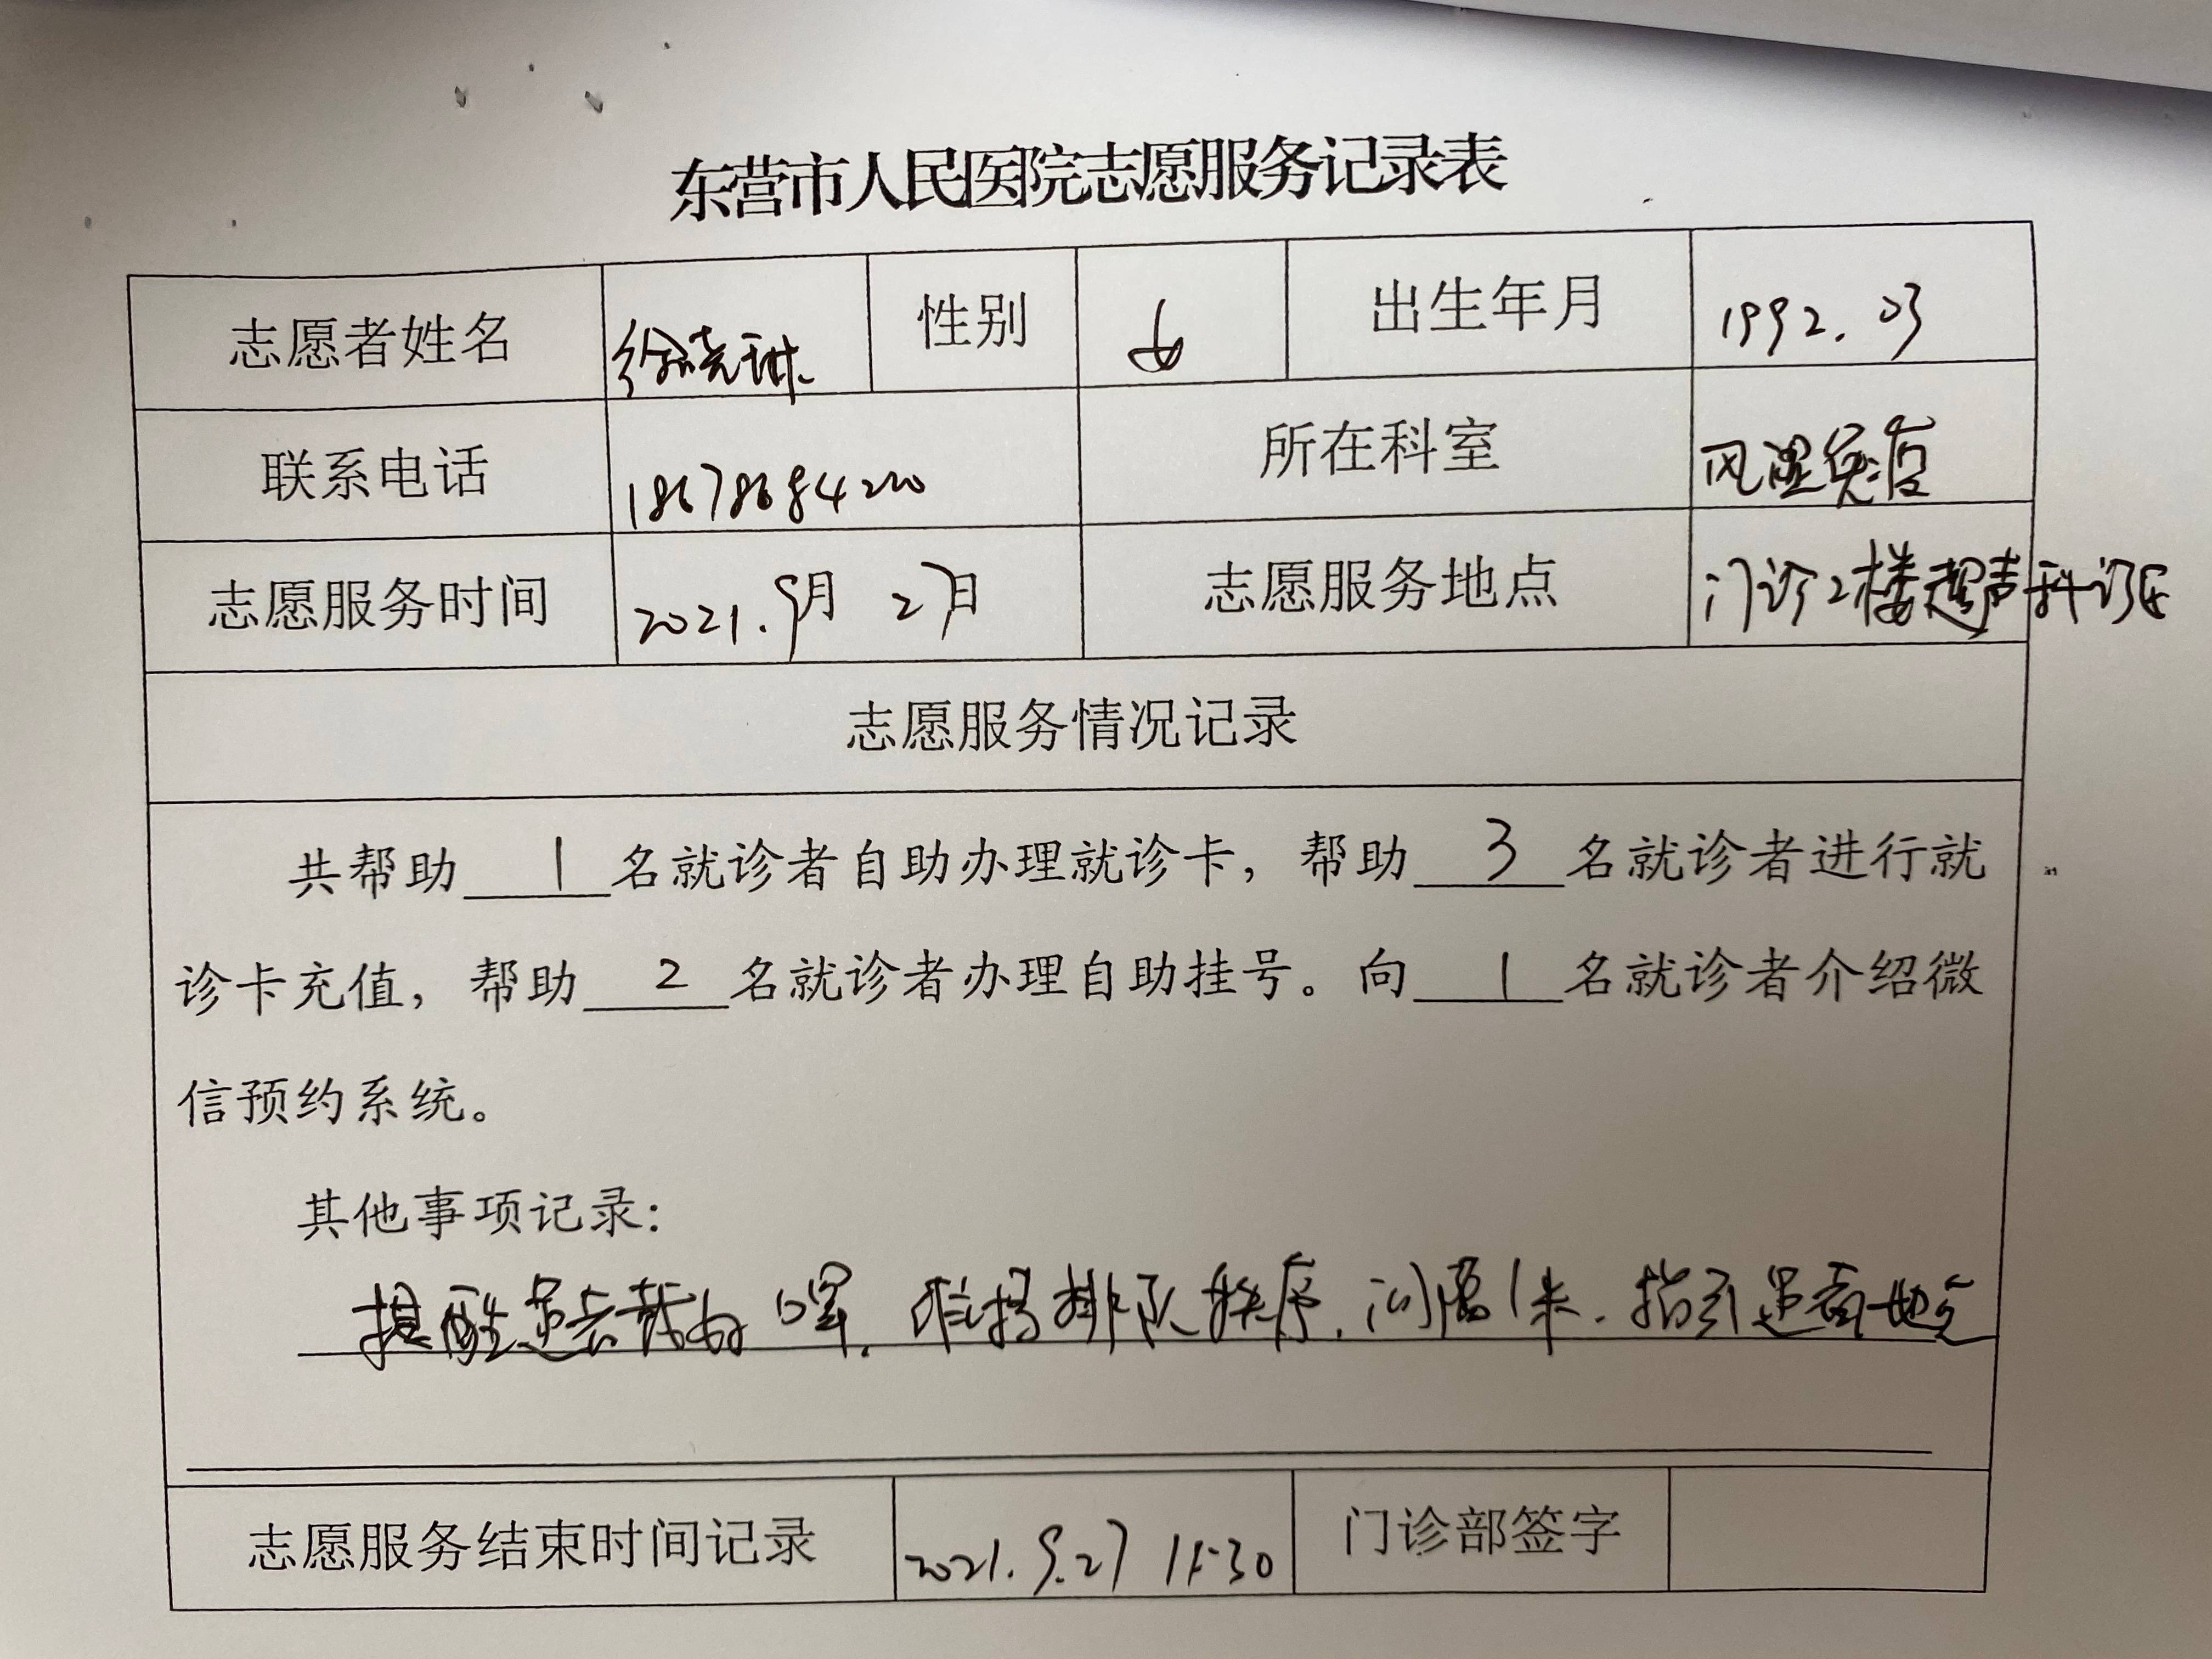 东营市人民医院志愿服务记录表
志愿者姓名 徐晓琳 性别 女 出生年月 1992.03
联系电话 18678684220 所在科室 风湿免疫
志愿服务时间 2021.9月27日 志愿服务地点 门诊2楼超声科诊区
志愿服务情况记录
共帮助 1 名就诊者自助办理就诊卡，帮助 3 名就诊者进行就
诊卡充值，帮助 2 名就诊者办理自助挂号。向 1 名就诊者介绍微
信预约系统。
其他事项记录：
提醒患者戴好口罩，维持排队秩序，间隔1米.指引患者地点
志愿服务结束时间记录 2021.9.27 11:30 门诊部签字